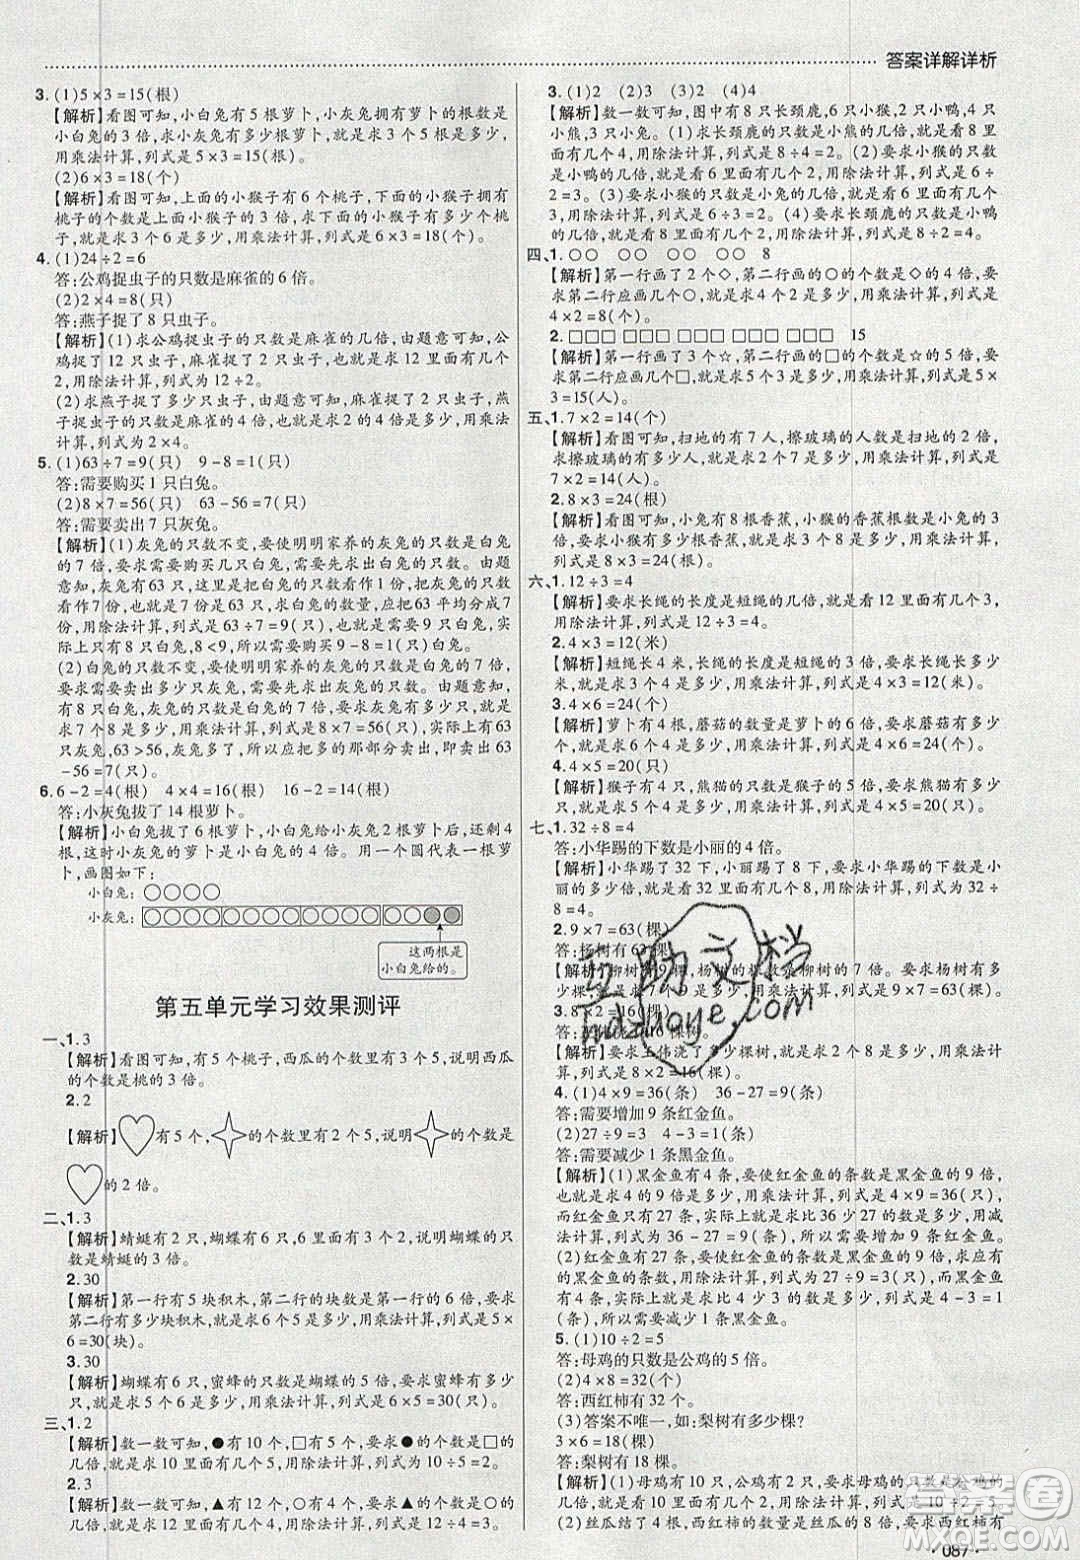 答案详解详析
3. (1)5×3=15(根)
【解析】看图可知,小白兔有5根萝卜,小灰兔拥有萝卜的根数是
小白兔的3倍,求小灰兔有多少根萝卜,就是求3个5根是多少,
用乘法计算,列式是5×3=15(根)。
(2)6×3=18(个)
【解析】看图可知,上面的小猴子有6个桃子,下面的小猴子拥有
桃子的个数是上面小猴子的3倍。求下面的小猴子有多少个桃
子,就是求3个6是多少,用乘法计算,列式是6×3=18(个)。
4. (1)24÷2=6
答:公鸡捉虫子的只数是麻雀的6倍。
(2)2×4=8(只)
答:燕子捉了8只虫子。
【解析】(1)求公鸡捉虫子的只数是麻雀的几倍,由题意可知,公
鸡捉了12只虫子,麻雀捉了2只虫子,就是求12里面有几个
2,用除法计算,列式是12÷2。
(2)求燕子捉了多少只虫子,由题意可知,麻雀捉了2只虫子,燕
子捉虫子的只数是麻雀的4倍,就是求4个2是多少,用乘法计
算,列式为2×4。
5. (1)63÷7=9(只) 9-8=1(只)
答:需要购买1只白兔。
(2)8×7=56(只) 63-56=7(只)
答:需要卖出7只灰兔。
【解析】(1)灰兔的只数不变,要使明明家养的灰兔的只数是白兔
的7倍,要求还需要购买几只白兔,需要先求出白兔的只数。由题
意知,灰兔有63只,这里是把白兔的只数看作1份,那么灰兔的只数
看作有这样的7份,要求出白兔的数量,应把63平均分成7
份,用除法计算,列式是63÷7=9(只),也就是需要9只白兔,实
际上有8只白兔,8<9,所以需要购买9-8=1(只)白兔。
(2)白兔的只数不变,要使明明家养的灰兔的只数是白兔的7倍,
要求需要卖出多少只灰兔,需要先求出灰兔的只数。由题意知,
白兔有8只,灰兔的只数是白兔的7倍,要求灰兔有多少只,就是
求7个8是多少,用乘法计算,列式是8×7=56(只),实际上有
63只灰兔,63>56,所以应把多的那部分卖出,即卖出63
-56=7(只)。
6. 6-2=4(根) 4×4=16(根) 16-2=14(根)
答:小灰兔拔了14根萝卜。
【解析】小白兔拔了6根萝卜,小白兔给小灰兔2根萝卜后,还剩4
根,这时小灰兔的萝卜是小白兔的4倍。用一个圆代表一根萝
卜,画图如下:
小白兔:○○○○
小灰兔:○○○○○○○○○○○○○○●●
这两根是
小白兔给的。
第五单元学习效果测评
一、1. 3
【解析】看图可知,有5个桃子,西瓜的个数里有3个5,说明西瓜
的个数是桃的3倍。
2. 2
【解析】♡有5个,✧的个数里有2个5,说明✧的个数是
♡的2倍。
二、1. 3
【解析】蜻蜓有2只,蝴蝶有6只,6里面有3个2,说明蝴蝶的只
数是蜻蜓的3倍。
2. 30
【解析】第一行有5块积木,第二行的块数是第一行的6倍,要求
第二行有多少块积木,就是求6个5是多少,用乘法计算,列式是5×
6=30(块)。
3. 30
【解析】蝴蝶有6只,蜜蜂的只数是蝴蝶的5倍,要求蜜蜂有多少
只,就是求5个6是多少,用乘法计算,列式是6×5=30(只)。
三、1. 2
【解析】数一数可知,●有10个,□有5个,要求●的个数是□的
几倍,就是看10里面有几个5,用除法计算,列式是10÷5=2。
2. 3
【解析】数一数可知,▲有12个,★有4个,要求▲的个数是★的
几倍,就是看12里面有几个4,用除法计算,列式是12÷4=3。
3. (1)2 (2)3 (3)2 (4)4
【解析】数一数可知,图中有8只长颈鹿,6只小猴,2只小鸭,4只
小熊,3只小兔。(1)求长颈鹿的只数是小熊的几倍,就是看8里
面有几个4,用除法计算,列式是8÷4=2。(2)要求小猴的只数
是小鸭的几倍,就是看6里面有几个2,用除法计算,列式是6÷
2=3。(3)要求小猴的只数是小兔的几倍,就是看6里面有几个
3,用除法计算,列式是6÷3=2。(4)要求长颈鹿的只数是小鸭
的几倍,就是看8里面有几个2,用除法计算,列式是8÷2=4。
四、1. ○○ ○○ ○○ ○○ 8
【解析】第一行画了2个◇,第二行画的○的个数是◇的4倍,要
求第二行应画几个○,就是求4个2是多少,用乘法计算,列式是
4×2=8(个)。
2. □□□ □□□ □□□ □□□ □□□ 15
【解析】第一行画了3个☆,第二行画的□的个数是☆的5倍,要
求第二行应画几个□,就是求5个3是多少,用乘法计算,列式是5×
3=15(人)。
五、1. 7×2=14(个)
【解析】看图可知,扫地的有7人,擦玻璃的人数是扫地的2倍,要
求擦玻璃的有多少人,就是求2个7是多少,用乘法计算,列式是
7×2=14(人)。
2. 8×3=24(根)
【解析】看图可知,小兔有8根香蕉,小猴的香蕉根数是小兔的3
倍,要求小猴有多少根香蕉,就是求3个8是多少,用乘法计算,
列式是8×3=24(根)。
六、1. 12÷3=4
【解析】要求长绳的长度是短绳的几倍,就是看12里面有几个3,
用除法计算,列式是12÷3=4。
2. 4×3=12(米)
【解析】短绳长4米,长绳的长度是短绳的3倍,要求长绳长多少
米,就是求3个4是多少,用乘法计算,列式是4×3=12(米)。
3. 4×6=24(个)
【解析】萝卜有4根,蘑菇的数量是萝卜的6倍,要求蘑菇有多少
个,就是求6个4是多少,用乘法计算,列式是4×6=24(个)。
4. 4×5=20(只)
【解析】猴子有4只,熊猫的只数是猴子的5倍,要求熊猫有多少
只,就是求5个4是多少,用乘法计算,列式是4×5=20(只)。
七、1. 32÷8=4
答:小华踢的下数是小丽的4倍。
【解析】小华踢了32下,小丽踢了8下,要求小华踢的下数是小
丽的多少倍,就是求32里面有几个8,用除法计算,列式是32÷
8=4。
2. 9×7=63(棵)
答:杨树有63棵。
【解析】柳树有9棵,杨树的棵数是柳树的7倍,要求杨树有多少
棵,就是求7个9是多少,用乘法计算,列式是9×7=63(棵)。
3. 8×2=16(棵)
【解析】要求王伟浇了多少棵树,就是求2个8是多少,用乘法计
算,列式是8×2=16(棵)。
4. (1)4×9=36(条) 36-27=9(条)
答:需要增加9条红金鱼。
(2)27÷9=3(条) 4-3=1(条)
答:需要减少1条黑金鱼。
【解析】(1)黑金鱼有4条,要使红金鱼的条数是黑金鱼的9倍,
也就是求9个4是多少,用乘法计算,列式是4×9=36(条)。
而红金鱼有27条,要求需要增加多少条红金鱼,用减
法计算,列式是36-27=9(条)。
(2)红金鱼有27条,要使红金鱼的条数是黑金鱼的9倍,求应有
黑金鱼的条数,用除法计算,列式是27÷9=3(只),而黑金鱼
有4条,要求需要减少多少条,就是求比4少多少,列式是4-3=1
(条),所以需要减少1条黑金鱼。
5. (1)10÷2=5
答:母鸡的只数是公鸡的5倍。
(2)8×4=32(个)
答:西红柿有32个。
(3)答案不唯一,如:梨树有多少棵?
3×6=18(棵)
答:梨树有18棵。
【解析】(1)母鸡有10只,公鸡有2只,要求母鸡的只数是公鸡的
几倍,就是看10里面有几个2,用除法计算,列式是10÷2=5。
(2)丝瓜有8个,西红柿的个数是丝瓜的4倍,要求西红柿有
·087·
互助文档
hdzhaoye.com
答案圈
MXQE.COM